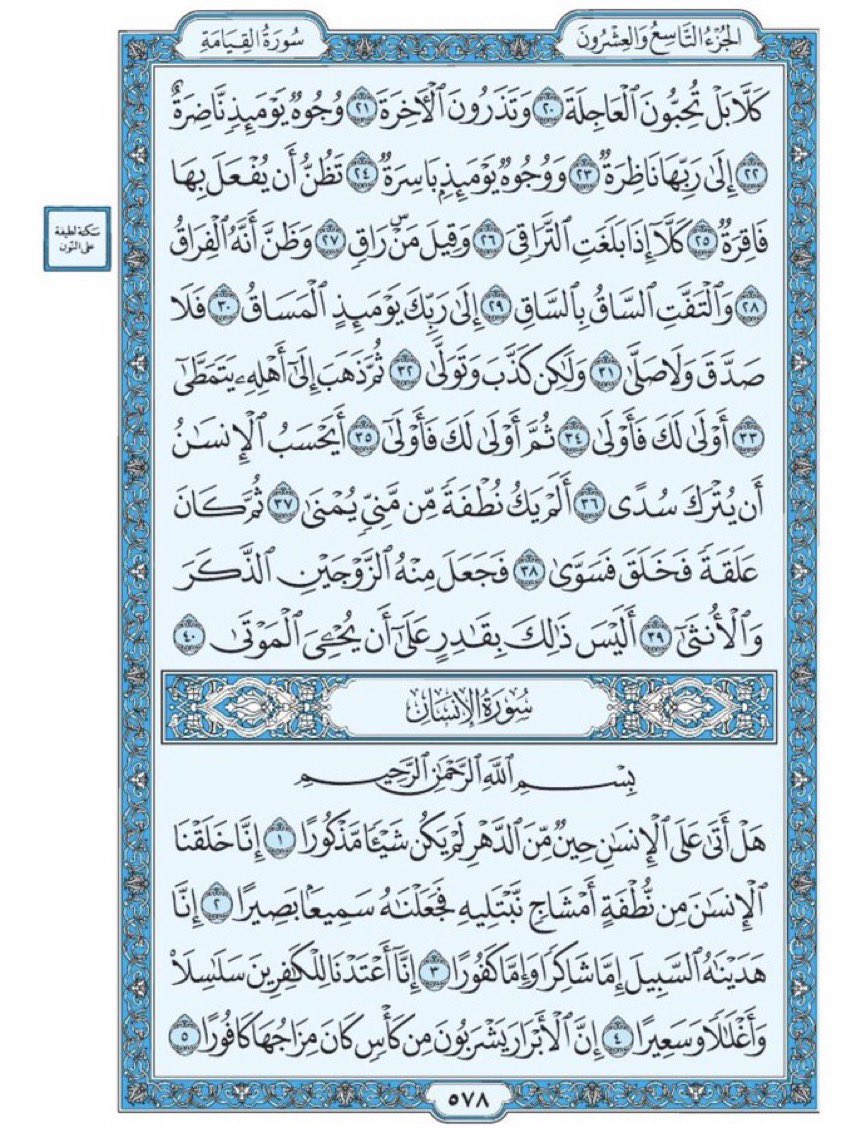 الجُزْءُ التَّاسِعُ وَالعِشْرُونَ
سُورَةُ القِيَامَةِ
كَلَّا بَلْ تُحِبُّونَ ٱلْعَاجِلَةَ ٢٠ وَتَذَرُونَ ٱلْأَخِرَةَ ٢١ وُجُوهٌ يَوْمَئِذٍ نَّاضِرَةٌ
٢٢ إِلَىٰ رَبِّهَا نَاظِرَةٌ ٢٣ وَوُجُوهٌ يَوْمَئِذٍۭ بَاسِرَةٌ ٢٤ تَظُنُّ أَن يُفْعَلَ بِهَا
فَاقِرَةٌ ٢٥ كَلَّآ إِذَا بَلَغَتِ ٱلتَّرَاقِىَ ٢٦ وَقِيلَ مَنْۜ رَاقٍ ٢٧ وَظَنَّ أَنَّهُ ٱلْفِرَاقُ
سكتة لطيفة
على النون
٢٨ وَٱلْتَفَّتِ ٱلسَّاقُ بِٱلسَّاقِ ٢٩ إِلَىٰ رَبِّكَ يَوْمَئِذٍ ٱلْمَسَاقُ ٣٠ فَلَا
صَدَّقَ وَلَا صَلَّىٰ ٣١ وَلَٰكِن كَذَّبَ وَتَوَلَّىٰ ٣٢ ثُمَّ ذَهَبَ إِلَىٰٓ أَهْلِهِۦ يَتَمَطَّىٰٓ
٣٣ أَوْلَىٰ لَكَ فَأَوْلَىٰ ٣٤ ثُمَّ أَوْلَىٰ لَكَ فَأَوْلَىٰٓ ٣٥ أَيَحْسَبُ ٱلْإِنسَٰنُ
أَن يُتْرَكَ سُدًى ٣٦ أَلَمْ يَكُ نُطْفَةً مِّن مَّنِىٍّ يُمْنَىٰ ٣٧ ثُمَّ كَانَ
عَلَقَةً فَخَلَقَ فَسَوَّىٰ ٣٨ فَجَعَلَ مِنْهُ ٱلزَّوْجَيْنِ ٱلذَّكَرَ
وَٱلْأُنثَىٰٓ ٣٩ أَلَيْسَ ذَٰلِكَ بِقَٰدِرٍ عَلَىٰٓ أَن يُحْـِۧىَ ٱلْمَوْتَىٰ ٤٠
سُورَةُ الإِنسَانِ
بِسْمِ ٱللَّهِ ٱلرَّحْمَٰنِ ٱلرَّحِيمِ
هَلْ أَتَىٰ عَلَى ٱلْإِنسَٰنِ حِينٌ مِّنَ ٱلدَّهْرِ لَمْ يَكُن شَيْـًٔا مَّذْكُورًا ١ إِنَّا خَلَقْنَا
ٱلْإِنسَٰنَ مِن نُّطْفَةٍ أَمْشَاجٍ نَّبْتَلِيهِ فَجَعَلْنَٰهُ سَمِيعًۢا بَصِيرًا ٢ إِنَّا
هَدَيْنَٰهُ ٱلسَّبِيلَ إِمَّا شَاكِرًا وَإِمَّا كَفُورًا ٣ إِنَّآ أَعْتَدْنَا لِلْكَٰفِرِينَ سَلَٰسِلَا۟
وَأَغْلَٰلًا وَسَعِيرًا ٤ إِنَّ ٱلْأَبْرَارَ يَشْرَبُونَ مِن كَأْسٍ كَانَ مِزَاجُهَا كَافُورًا ٥
٥٧٨